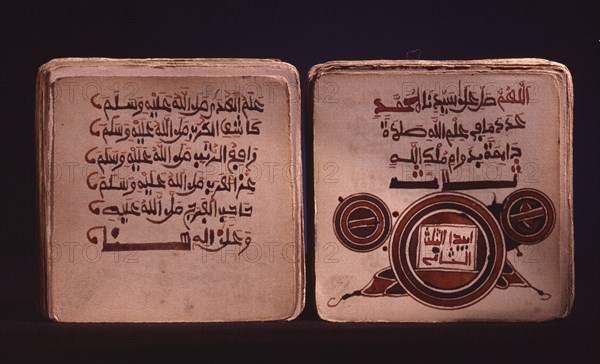 اللهم صل على سيدنا محمد
عدد ما في علم الله صلاة
دايمة بدوام ملك الله
ثلاث
الثلث
علم الهدى صلى الله عليه وسلم
كاشف الكرب صلى الله عليه وسلم
رافع الرتب صلى الله عليه وسلم
عز العرب صلى الله عليه وسلم
صاحب الفرج صلى الله عليه
وعلى اله